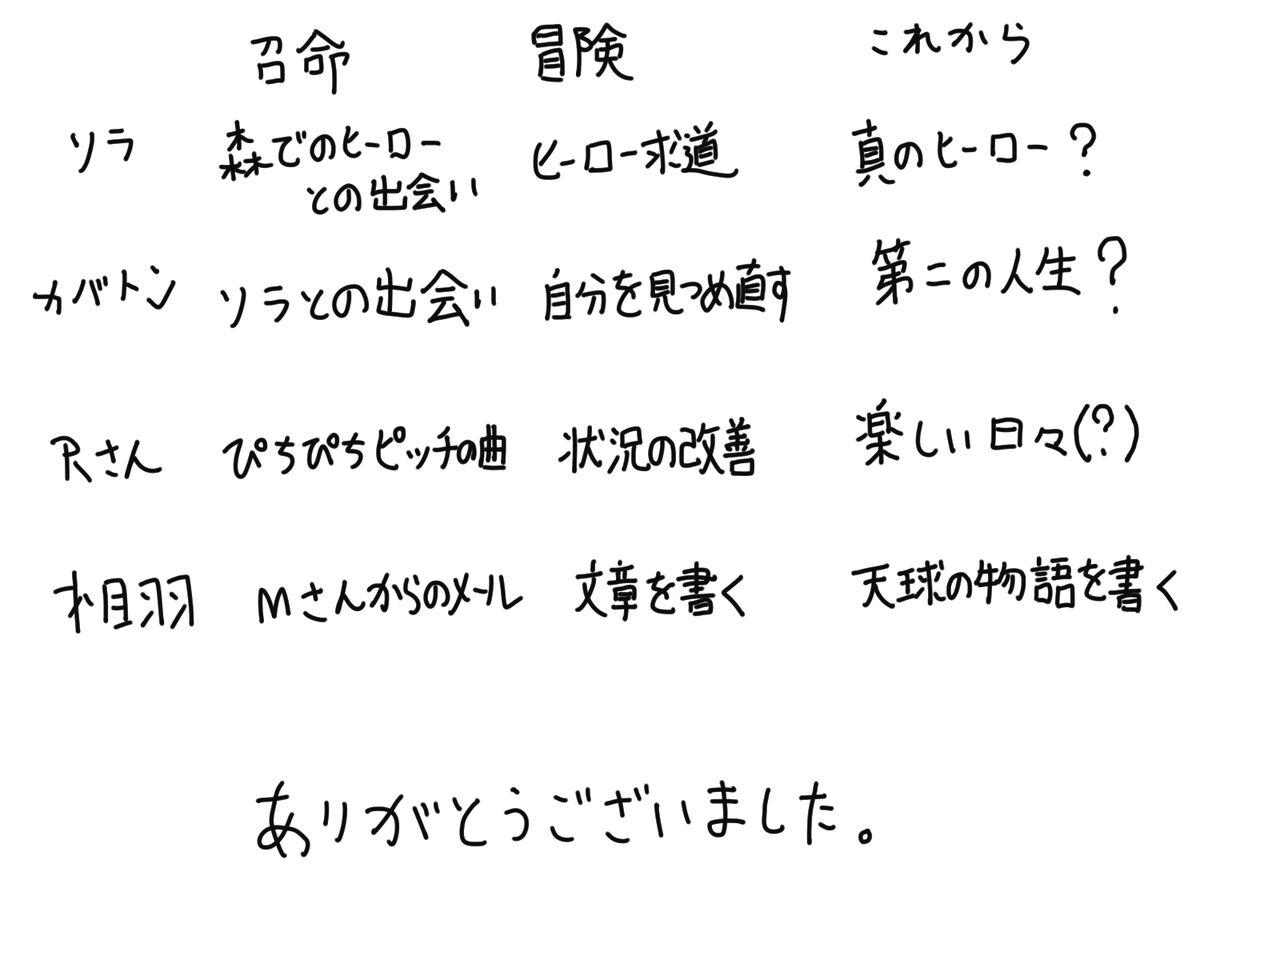 召命 冒険 これから
ソラ 森でのヒーローとの出会い ヒーロー求道 真のヒーロー？
カバトン ソラとの出会い 自分を見つめ直す 第二の人生？
Rさん ぴちぴちピッチの曲 状況の改善 楽しい日々(？)
相羽 Mさんからのメール 文章を書く 天球の物語を書く
ありがとうございました。